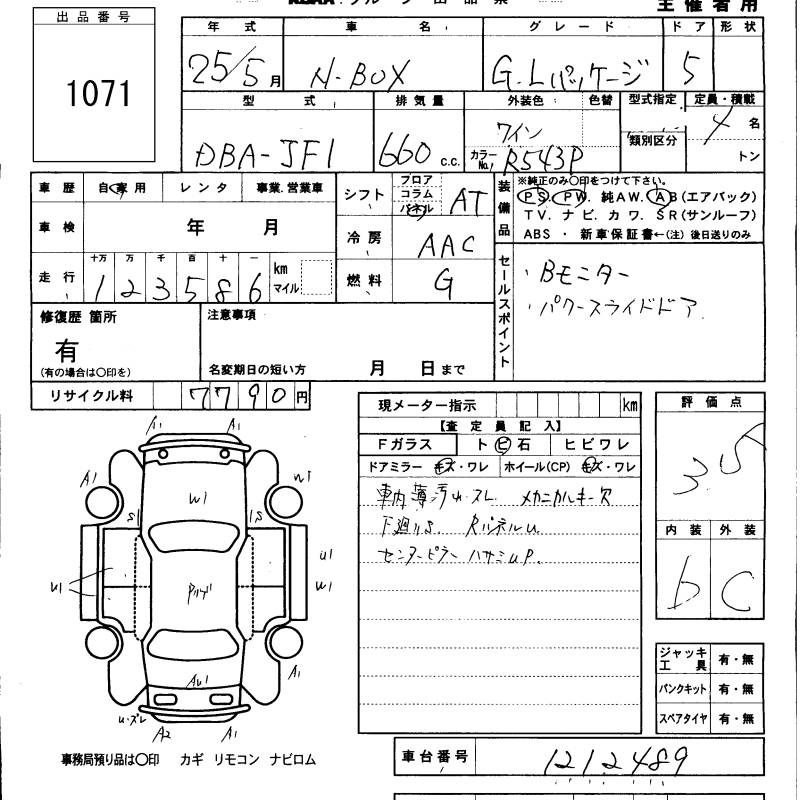 主催者用
出品番号
1071
年式 車名 グレード ドア 形状
25/5月 N-BOX G.Lパッケージ 5
型式 排気量 外装色 色替 型式指定 定員・積載
DBA-JF1 660 c.c. ワイン 類別区分 4名
カラーNo. R543P トン
車歴 自家用 レンタ 事業.営業車
シフト フロア コラム パネル AT
装備品 ※純正のみ○印をつけて下さい。
PS. PW. 純AW. AB(エアバック)
TV. ナビ. カワ. SR(サンルーフ)
ABS ・ 新車保証書←(注) 後日送りのみ
車検 年 月
冷房 AAC
走行 十万 万 千 百 十 一
123586 km マイル
燃料 G
セールスポイント
・Bモニター
・パワースライドドア
修復歴 箇所
有
(有の場合は○印を)
注意事項
名変期日の短い方 月 日まで
リサイクル料 7790円
現メーター指示 km
【査定員記入】
Fガラス ト ビ 石 ヒビワレ
ドアミラー キズ・ワレ ホイール(CP) キズ・ワレ
車内薄汚れ.スレ メカニカルキー欠
下廻りS. RパネルU
センターピラー ハサミUP.
評価点
3.5
内装 外装
b C
ジャッキ 工具 有・無
パンクキット 有・無
スペアタイヤ 有・無
A1 A1
A1 W1 W1
S1 1S
U1 U1
W1
A1
AU1
U・ズレ
A2 A1
事務局預り品は○印 カギ リモコン ナビロム
車台番号 1212489